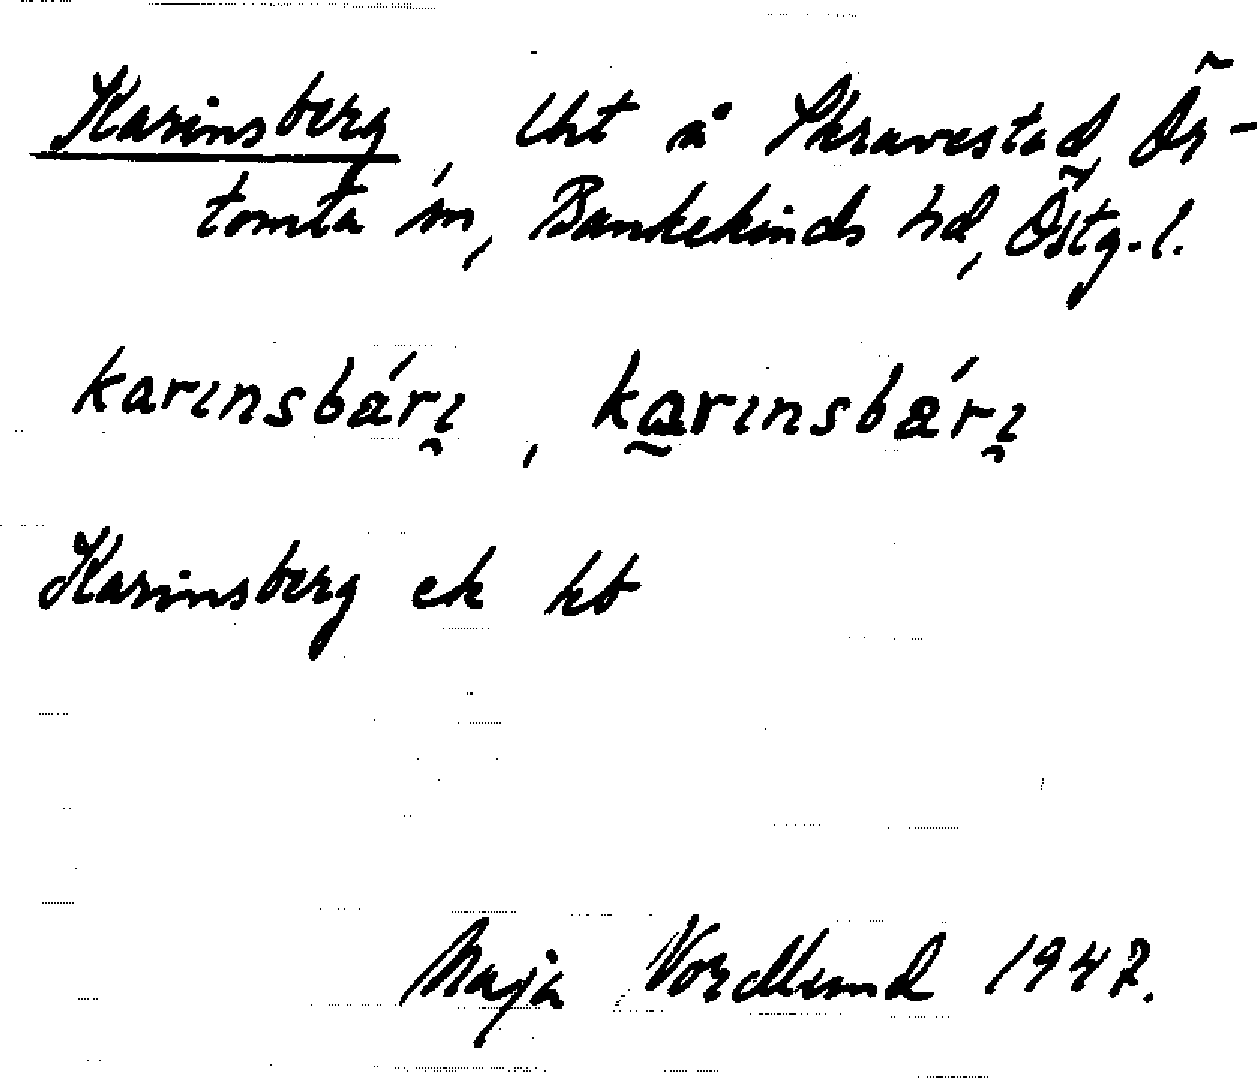 Karinsberg, lht å Skravestad, Ör-
tomta sn, Bankekinds hd, Östg. l.
karınsbárı̯, ka̰rınsbárı̯
Karinsberg ek kb
Maja Nordlund 1947.